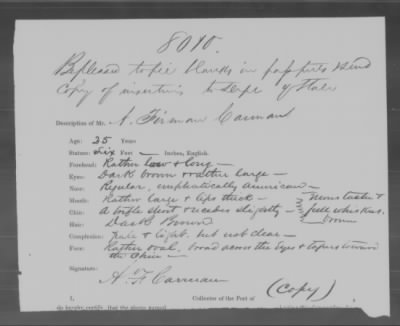 8090.
Be pleased to fill blanks in passports & send
copy of insertions to Dept of State
Description of Mr. A. Firman Carman
Age: 25 Years
Stature: Six Feet — Inches, English.
Forehead: Rather low & long —
Eyes: Dark brown & rather large —
Nose: Regular, emphatically American —
Mouth: Rather large & lips thick —
Chin: A trifle short & recedes slightly —
full whiskers,
brown
Hair: Dark Brown
Complexion: Pale & light, but not clear —
Face: Rather oval, broad across the Eyes & tapers toward
the Chin —
Signature:
A. F. Carman
(Copy)
I, Collector of the Port of
do hereby certify that the above named